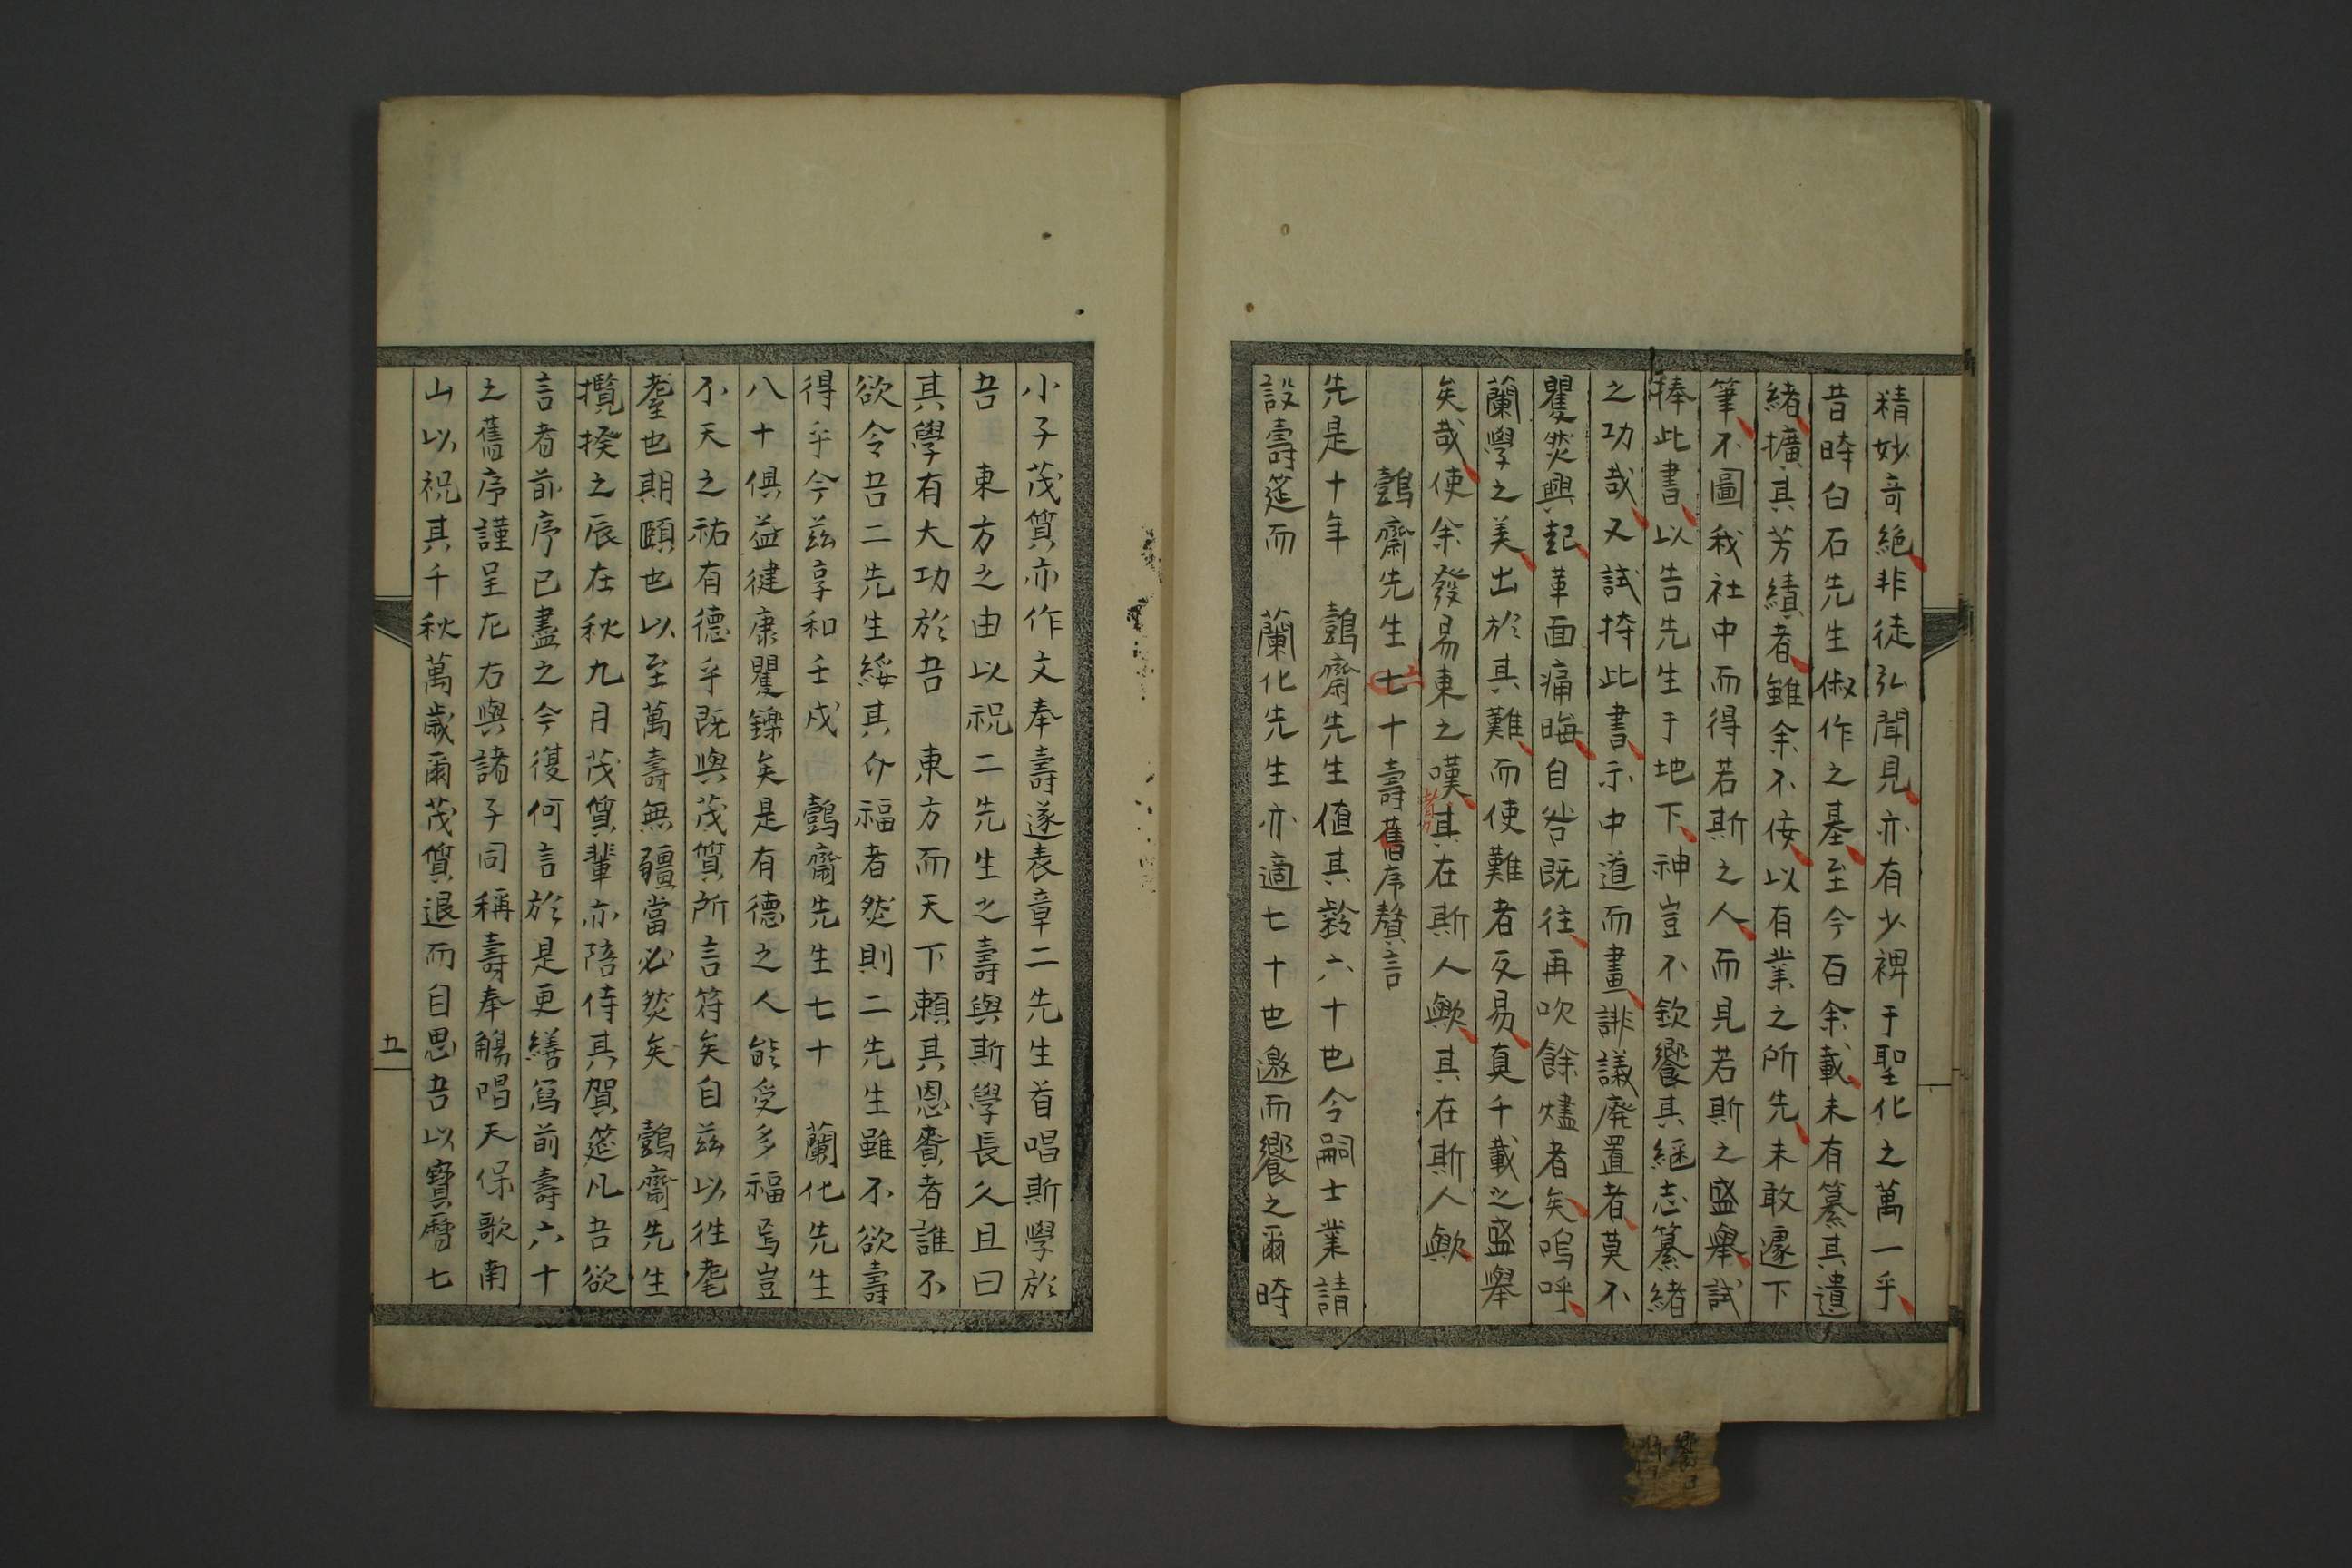 精妙奇絕非徒弘聞見亦有少裨于聖化之萬一乎
昔時白石先生俶作之基至今百余載未有纂其遺
緒擴其芳績者雖余不佞以有業之所先未敢遽下
筆不圖我社中而得若斯之人而見若斯之盛舉試
捧此書以告先生于地下神豈不欽饗其継志纂緒
之功哉又試持此書示中道而畫誹議廃置者莫不
瞿然興起革面痛晦自咎既往再吹餘燼者矣嗚呼
蘭學之美出於其難而使難者反易真千載之盛舉
矣哉使余發易東之嘆者其在斯人歟其在斯人歟
鷧齋先生七十壽舊序贅言
六
先是十年 鷧齋先生値其齡六十也令嗣士業請
設壽筵而 蘭化先生亦適七十也邀而饗之爾時
小子茂質亦作文奉壽遂表章二先生首唱斯學於
吾 東方之由以祝二先生之壽與斯學長久且曰
其學有大功於吾 東方而天下賴其恩賚者誰不
欲令吾二先生綏其介福者然則二先生雖不欲壽
得乎今茲享和壬戌 鷧齋先生七十 蘭化先生
八十俱益健康矍鑠矣是有德之人能受多福焉豈
不天之祐有德乎既與茂質所言符矣自茲以徃耄
耋也期頤也以至萬壽無疆當必然矣 鷧齋先生
攬揆之辰在秋九月茂質輩亦陪侍其賀筵凡吾欲
言者前序已盡之今復何言於是更繕寫前壽六十
之舊序謹呈左右與諸子同稱壽奉觴唱天保歌南
山以祝其千秋萬歳爾茂質退而自思吾以寶曆七
五